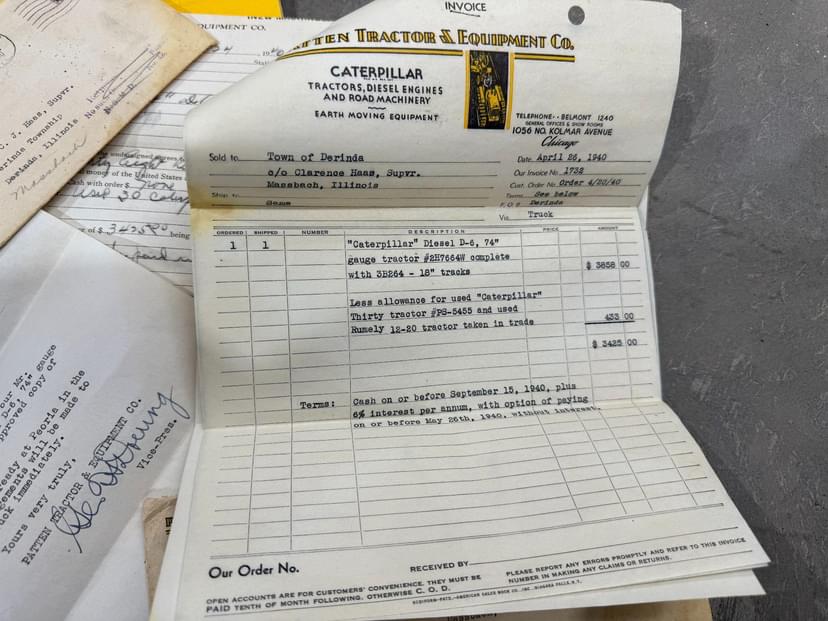 INVOICE
TTEN TRACTOR & EQUIPMENT CO.
CATERPILLAR
TRACTORS, DIESEL ENGINES
AND ROAD MACHINERY
EARTH MOVING EQUIPMENT
TELEPHONE-- BELMONT 1240
GENERAL OFFICES & SHOW ROOMS
1056 NO. KOLMAR AVENUE
Chicago
Sold to Town of Derinda
c/o Clarence Haas, Supvr.
Massbach, Illinois
Ship to
Same
Date April 26, 1940
Our Invoice No. 1732
Cust. Order No. Order 4/20/40
Terms See below
F.O.B. Derinda
Via Truck
ORDERED SHIPPED NUMBER DESCRIPTION PRICE AMOUNT
1 1 "Caterpillar" Diesel D-6, 74"
gauge tractor #2H7664W complete
with 3B264 - 18" tracks $ 3858 00
Less allowance for used "Caterpillar"
Thirty tractor #PS-5455 and used
Rumely 12-20 tractor taken in trade 433 00
$ 3425 00
Terms: Cash on or before September 15, 1940, plus
6% interest per annum, with option of paying
on or before May 26th, 1940, without interest.
Our Order No.
RECEIVED BY
OPEN ACCOUNTS ARE FOR CUSTOMERS' CONVENIENCE. THEY MUST BE
PAID TENTH OF MONTH FOLLOWING. OTHERWISE C. O. D.
PLEASE REPORT ANY ERRORS PROMPTLY AND REFER TO THIS INVOICE
NUMBER IN MAKING ANY CLAIMS OR RETURNS.
UIPMENT CO.
J. Haas, Supvr.
erinda Township
Derinda, Illinois
Massbach
money of the United States
ash with order $ none
of $ 3425.00 being
our Mr.
D-6, 74" gauge
pproved copy of
eady at Peoria in the
gements will be made to
uck immediately.
Yours very truly,
PATTEN TRACTOR & EQUIPMENT CO.
Vice-Pres.